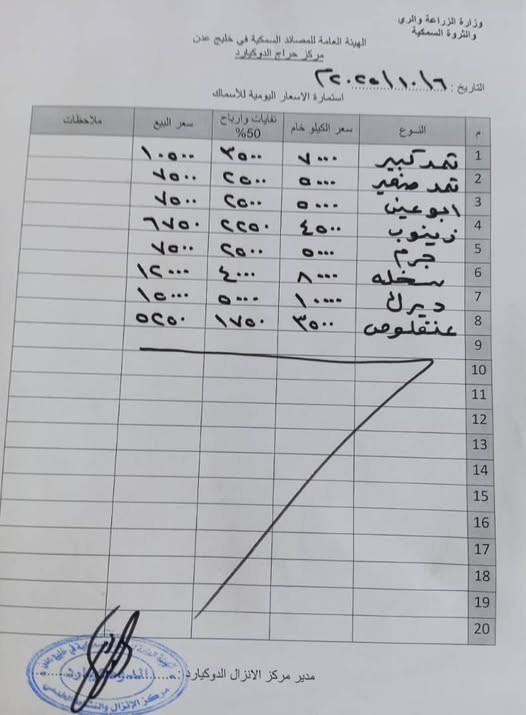 وزارة الزراعة والري
والثروة السمكية
الهيئة العامة للمصائد السمكية في خليج عدن
مركز حراج الدوكيارد
التاريخ : ٢٠٢٥/١٠/٦م
استمارة الاسعار اليومية للأسماك
م النـوع سعر الكيلو خام نفايات وارباح 50% سعر البيع ملاحظات
1 ثمد كبير ٧٠٠٠ ٣٥٠٠ ١٠٥٠٠
2 ثمد صغير ٥٠٠٠ ٢٥٠٠ ٧٥٠٠
3 ابو عين ٥٠٠٠ ٢٥٠٠ ٧٥٠٠
4 زينوب ٤٥٠٠ ٢٢٥٠ ٦٧٥٠
5 جرم ٥٠٠٠ ٢٥٠٠ ٧٥٠٠
6 سخله ٨٠٠٠ ٤٠٠٠ ١٢٠٠٠
7 ديرك ١٠٠٠٠ ٥٠٠٠ ١٥٠٠٠
8 عنقلوص ٣٥٠٠ ١٧٥٠ ٥٢٥٠
9
10
11
12
13
14
15
16
17
18
19
20
مدير مركز الانزال الدوكيارد :
مركز الإنزال